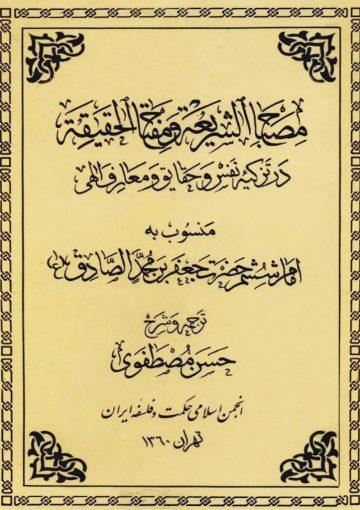 مصباح الشریعة و مفتاح الحقیقة
در تزکیه نفس و حقایق و معارف الهی
منسوب به
امام ششم حضرت جعفر بن محمد الصادق (ع)
ترجمه و شرح
حسن مصطفوی
انجمن اسلامی حکمت و فلسفه ایران
تهران ۱۳۶۰